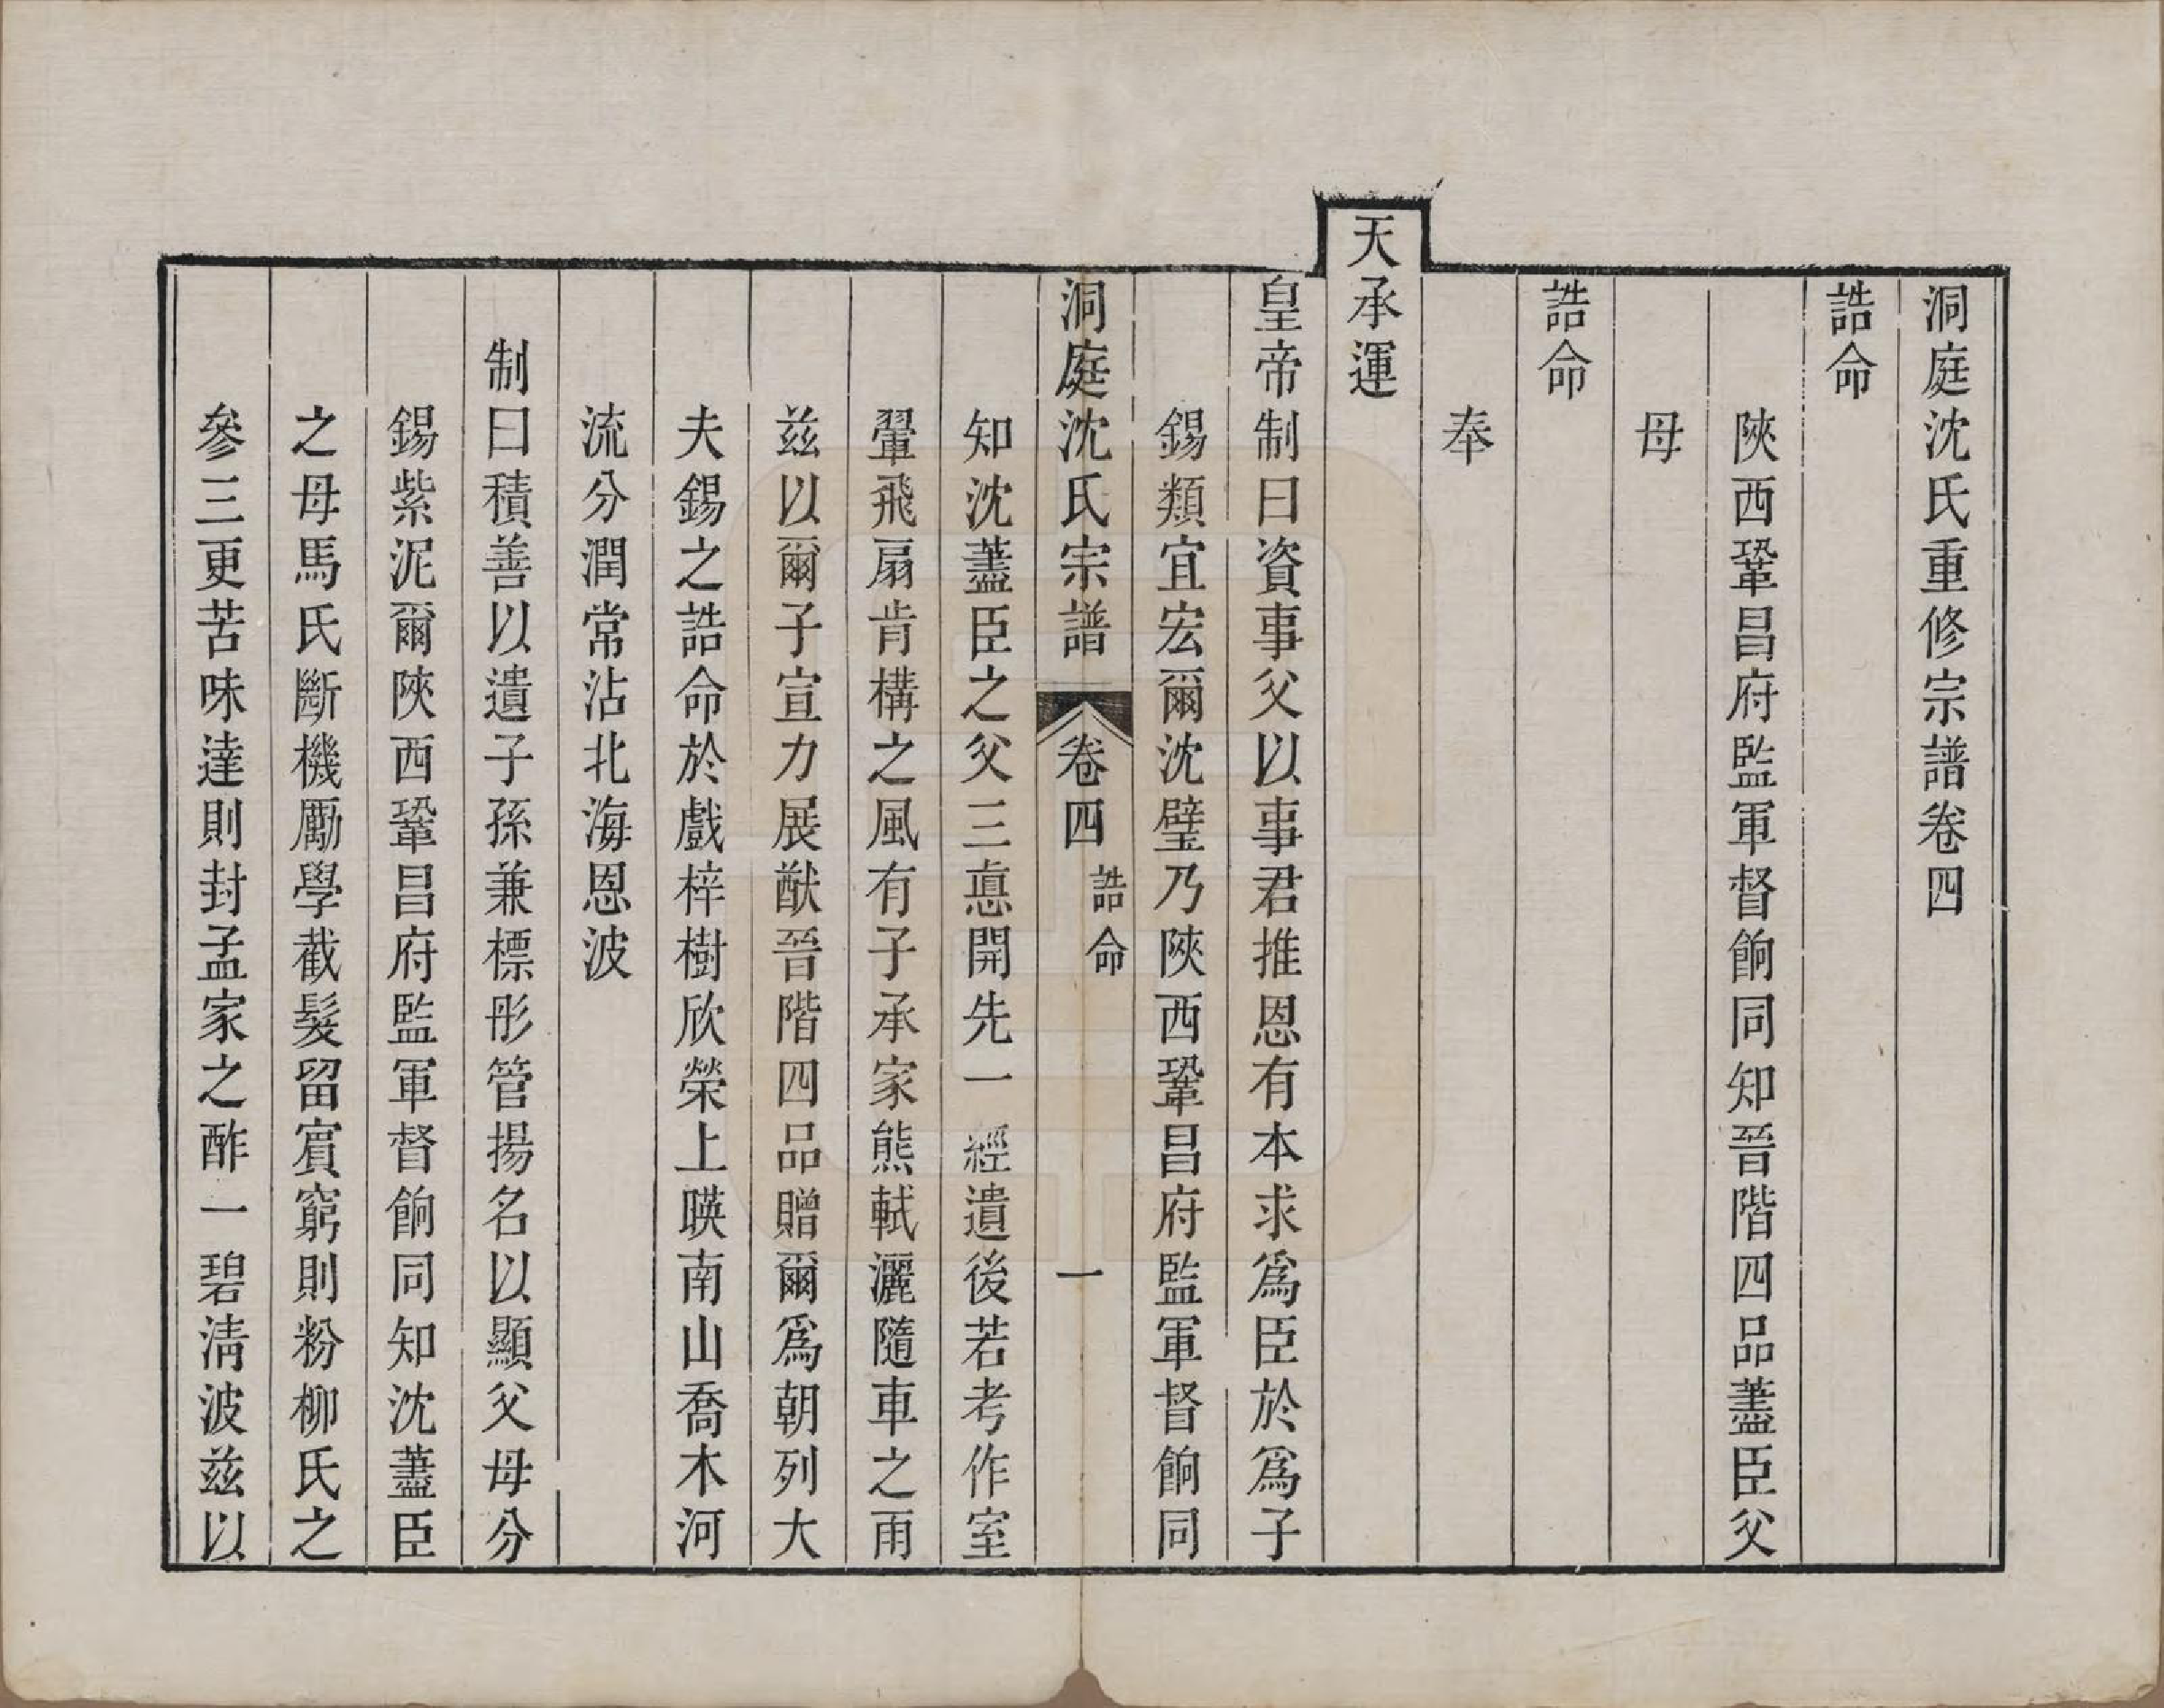 洞庭沈氏重修宗譜卷四
誥命
陝西鞏昌府監軍督餉同知晉階四品藎臣父
母
誥命
奉
天承運
皇帝制曰資事父以事君推恩有本求爲臣於爲子
錫類宜宏爾沈璧乃陝西鞏昌府監軍督餉同
洞庭沈氏宗譜 卷四 誥命 一
知沈藎臣之父三惪開先一經遺後若考作室
翬飛扇肯構之風有子承家熊軾灑隨車之雨
兹以爾子宣力展猷晉階四品贈爾爲朝列大
夫錫之誥命於戲梓樹欣榮上暎南山喬木河
流分潤常沾北海恩波
制曰積善以遺子孫兼標彤管揚名以顯父母分
錫紫泥爾陝西鞏昌府監軍督餉同知沈藎臣
之母馬氏斷機勵學截髮留賓窮則粉柳氏之
參三更苦味達則封孟家之酢一碧淸波兹以